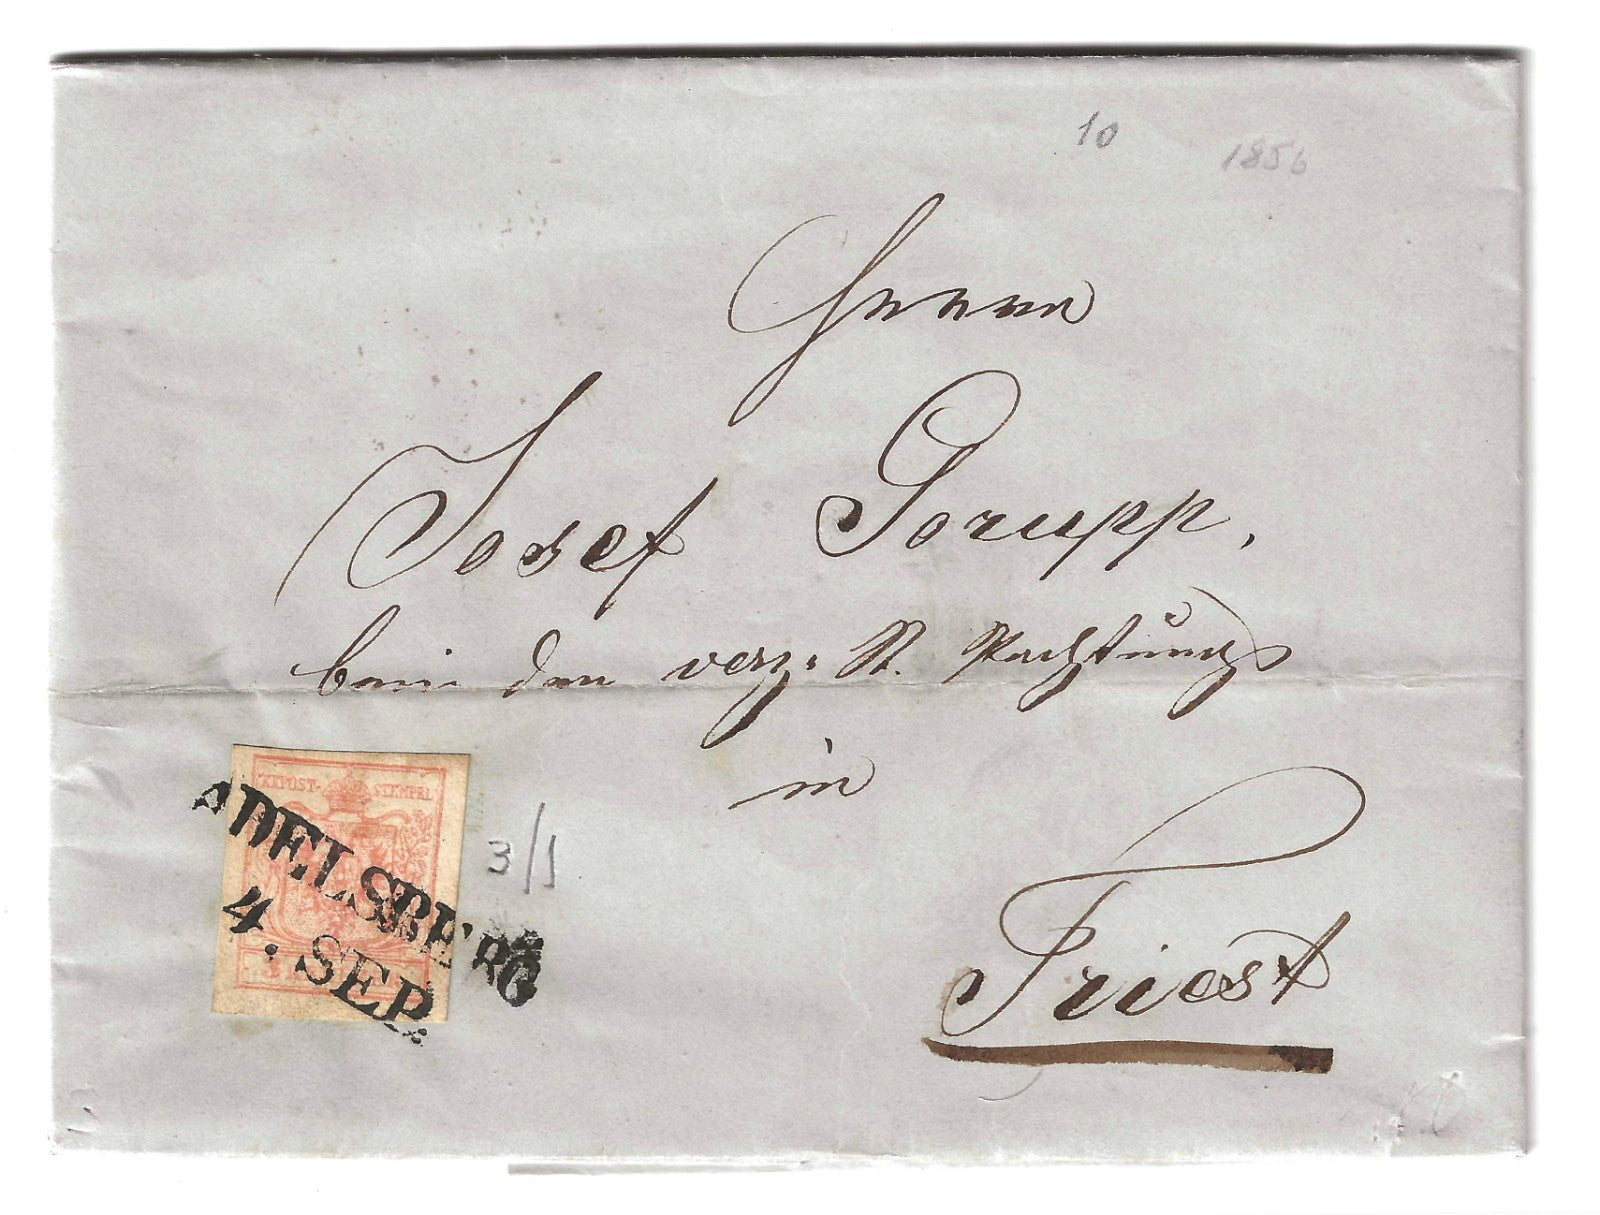 10
1856
Herrn
Josef Gorupp,
beim den verz: St. Pachtung
in
Triest
KKPOST-STEMPEL
ADELSBERG
4. SEP.
3
3/1